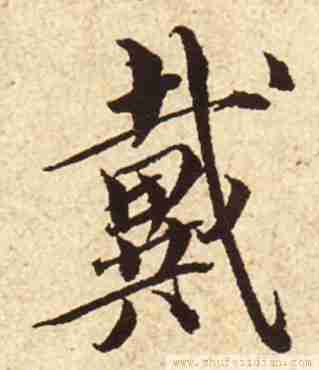 戴
www.shufazidian.com